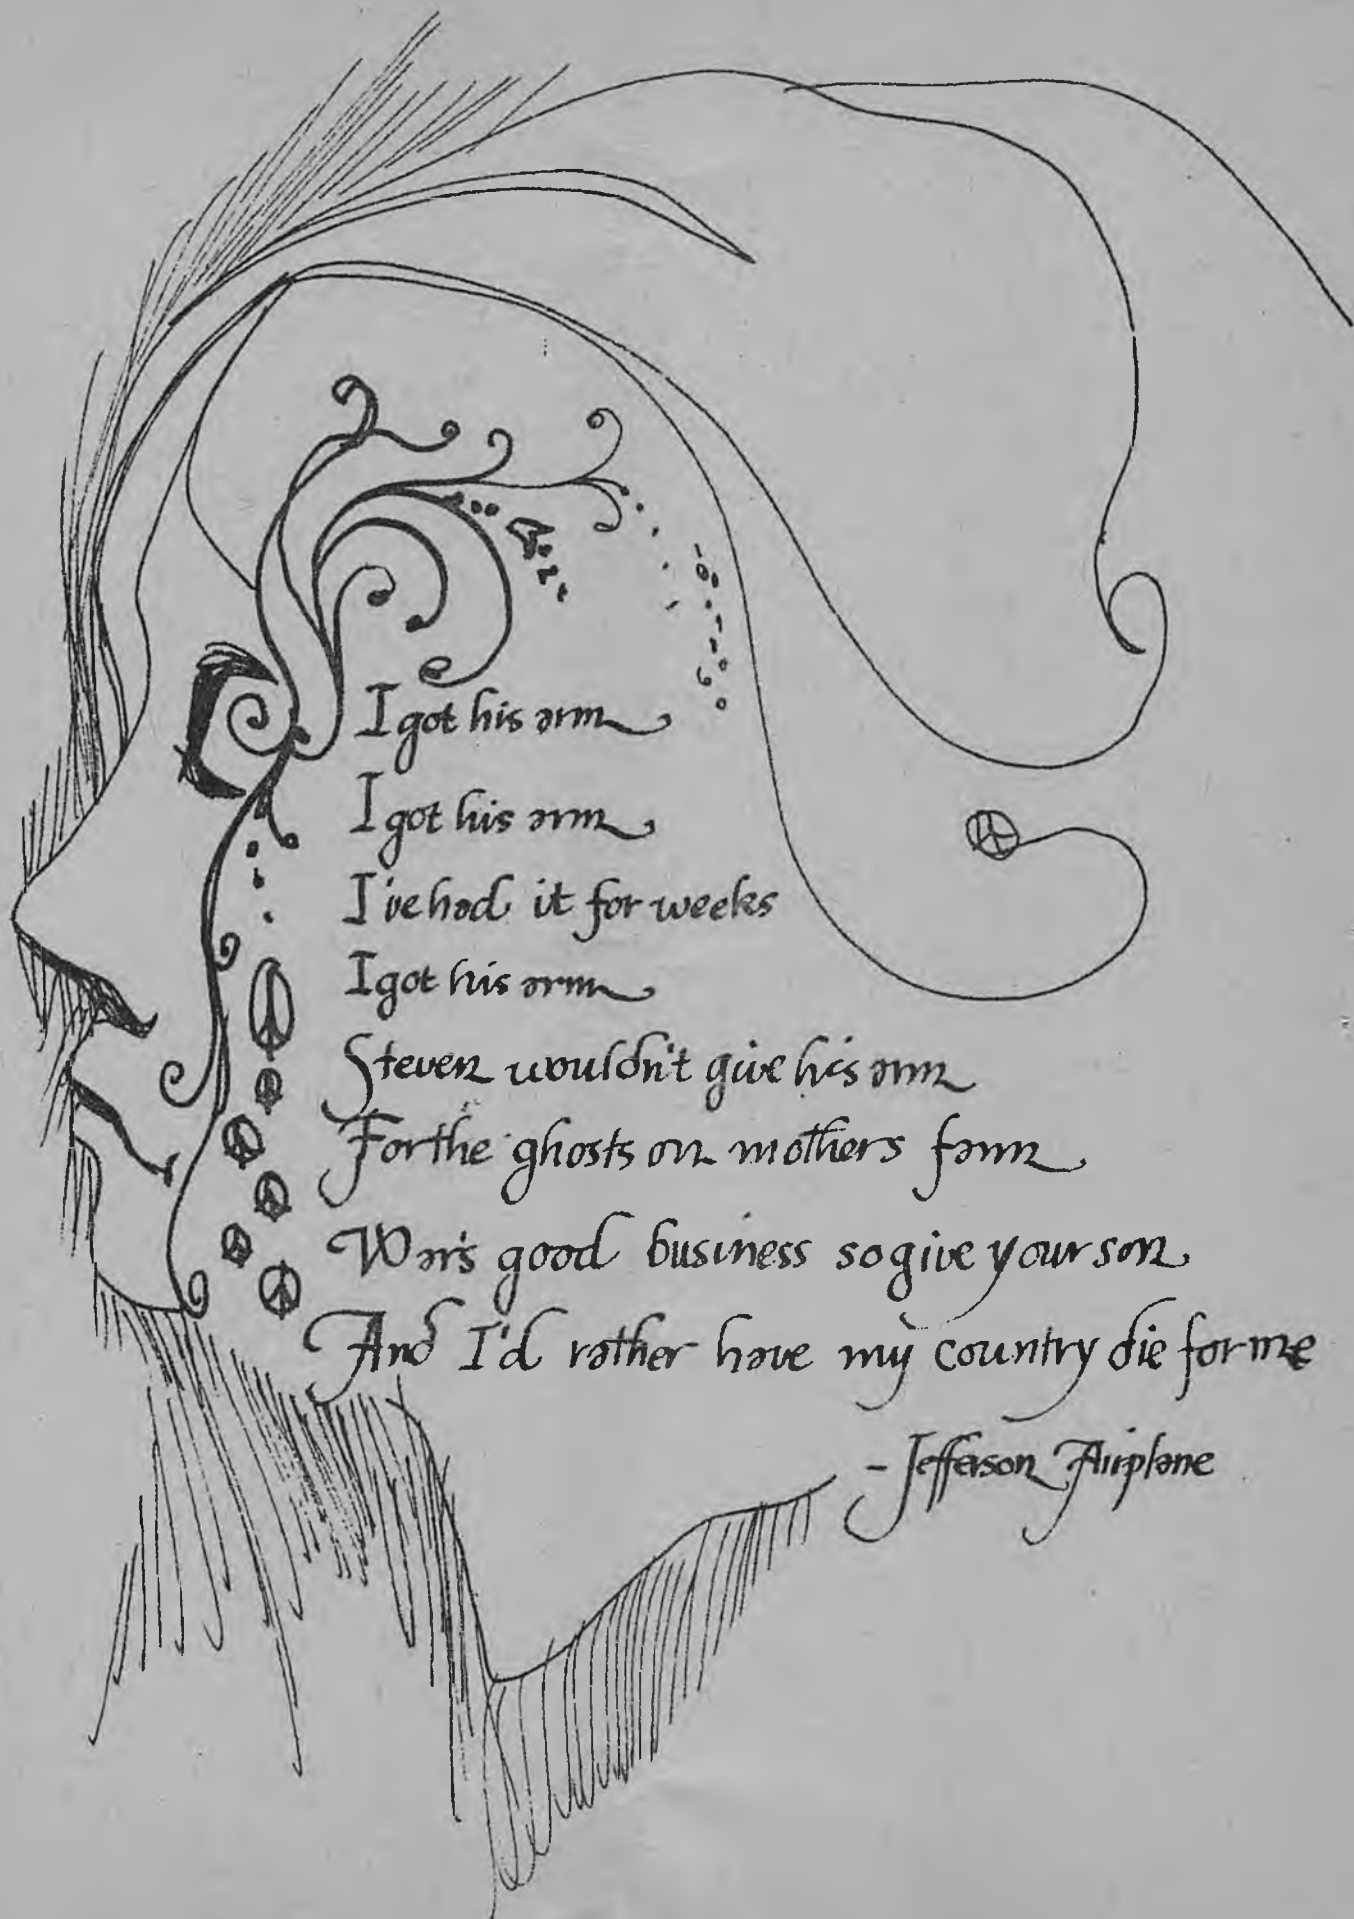 I got his arm
I got his arm
I've had it for weeks
I got his arm
Steven wouldn't give his arm
For the ghosts on mothers farm
War's good business so give your son
And I'd rather have my country die for me
- Jefferson Airplane